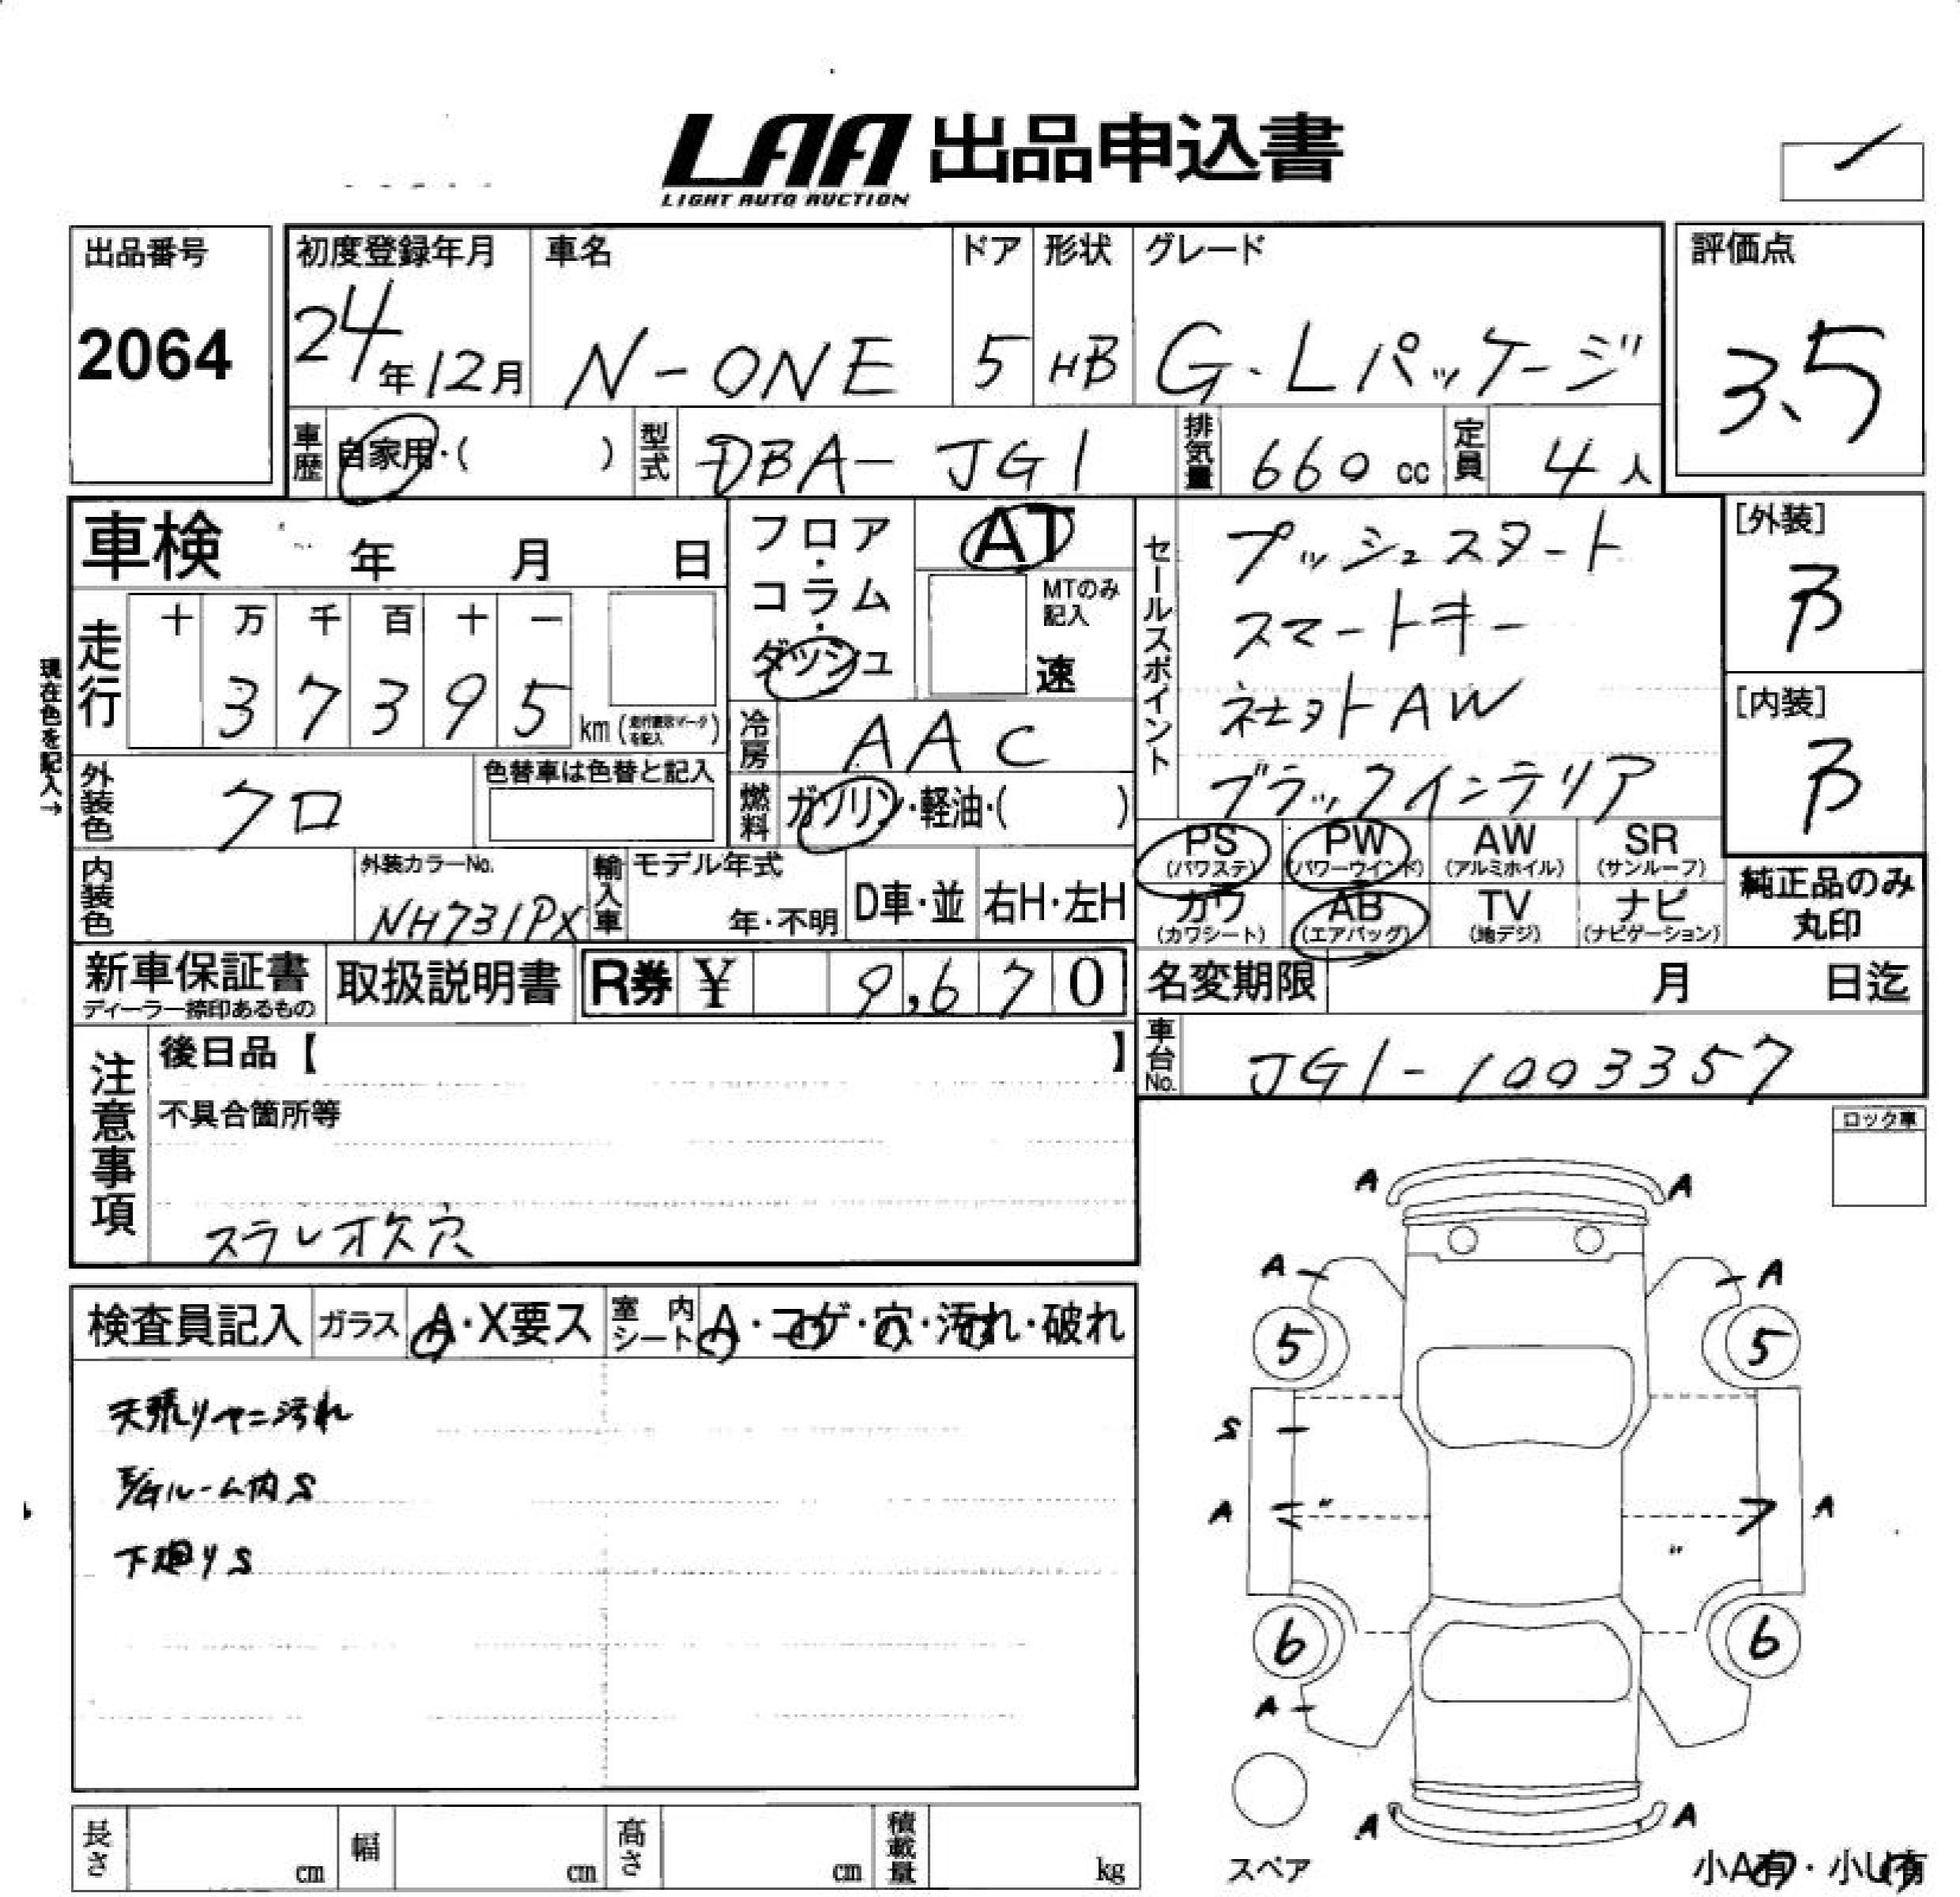 LAA 出品申込書
LIGHT AUTO AUCTION
出品番号
2064
初度登録年月
24年12月
車名
N-ONE
ドア
5
形状
HB
グレード
G・Lパッケージ
評価点
3.5
車歴 自家用・( )
型式 DBA-JG1
排気量 660 cc
定員 4人
車検 年 月 日
フロア・コラム・ダッシュ
AT
MTのみ記入
速
走行
十 万 千 百 十 一
3 7 3 9 5 km (
現在色を記入→
冷房 AAC
外装色 クロ
色替車は色替と記入
燃料 ガソリン・軽油・( )
内装色
外装カラーNo.
NH731PX
輸入車
モデル年式
年・不明
D車・並
右H・左H
セールスポイント
プッシュスタート
スマートキー
社外AW
ブラックインテリア
[外装]
B
[内装]
B
PS (パワステ) PW (パワーウインド) AW (アルミホイル) SR (サンルーフ)
カワ (カワシート) AB (エアバッグ) TV (地デジ) ナビ (ナビゲーション)
純正品のみ丸印
新車保証書
ディーラー捺印あるもの
取扱説明書
R券 ¥ 9,670
名変期限 月 日迄
車台No. JG1-1003357
注意事項
後日品【 】
不具合箇所等
ロック車
検査員記入
ガラス A・X要ス
室内シート A・コゲ・穴・汚れ・破れ
天張りヤニ汚れ
下廻りS
A A
A A
5 5
S
A A
6 6
A
A A
スペア
小A有・小U有
長さ cm
幅 cm
高さ cm
積載量 kg